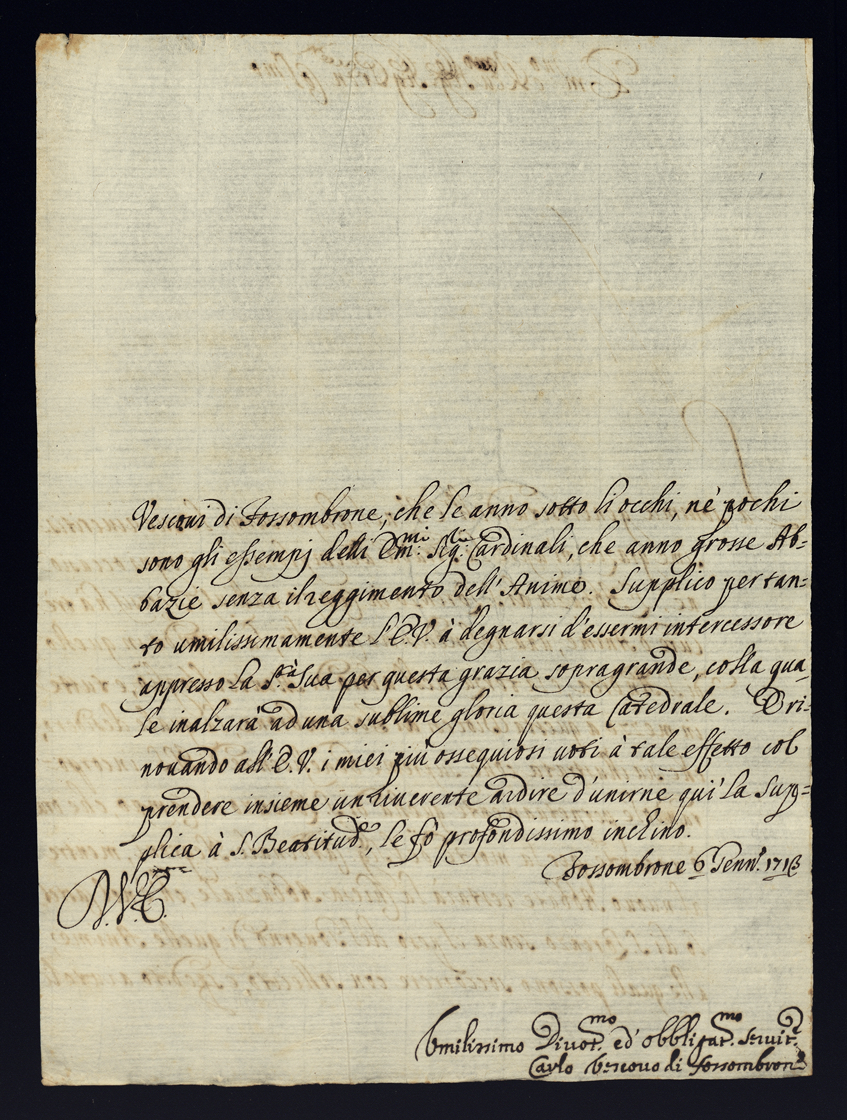 Vescovi di Fossombrone, che le anno sotto li occhi, nè pochi
sono gli essempj delli Em.mi Sig.ri Cardinali, che anno grosse Ab-
bazie senza il reggimento dell'Anime. Supplico pertan-
to umilissimamente l'E.V. à degnarsi d'essermi intercessore
appresso la S.tà Sua per questa grazia sopragrande, colla qua-
le inalzarà ad una sublime gloria questa Catedrale. E ri-
novando all'E.V. i miei più ossequiosi voti à tale effetto col
prendere insieme un riverente ardire d'unirne qui la sup-
plica à S. Beatitud.e, le fò profondissimo inchino.
Fossombrone 6 Genn.o 1718
Umilissimo Divot.mo ed obbligat.mo Servit.e
Carlo Vescovo di Fossombrone